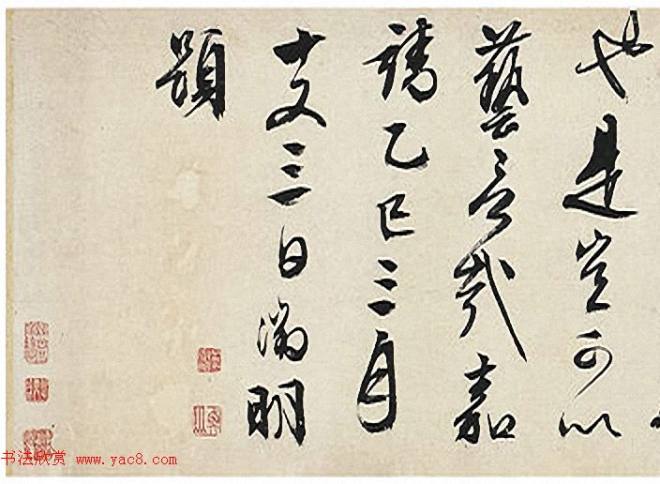 也是豈可以
藝言哉嘉
靖乙巳三月
十又三日徵明
題
书法欣赏 www.yac8.com